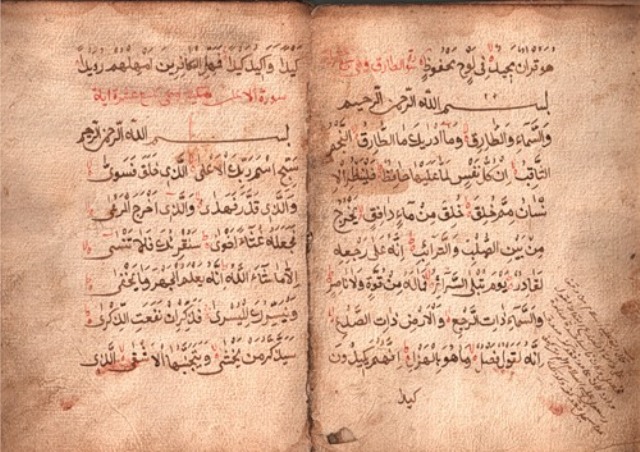 هو قرآن مجيد في لوح محفوظ سورة الطارق
بسم الله الرحمن الرحيم
والسماء والطارق وما أدريك ما الطارق النجم
الثاقب ان كل نفس لما عليها حافظ فلينظر الا
نسان مم خلق خلق من ماء دافق يخرج
من بين الصلب والترائب انه على رجعه
لقادر يوم تبلى السرائر فماله من قوة ولا ناصر
والسماء ذات الرجع والارض ذات الصدع
إنه لقول فصل وما هو بالهزل انهم يكيدون
كيدا
كيدا وأكيد كيدا فمهل الكافرين امهلهم رويدا
سورة الاعلى
بسم الله الرحمن الرحيم
سبح اسم ربك الاعلى الذي خلق فسوى
والذي قدر فهدى والذي اخرج المرعى
فجعله غثاء احوى سنقرئك فلا تنسى
إلا ما شاء الله انه يعلم الجهر وما يخفى
ونيسرك لليسرى فذكر ان نفعت الذكرى
سيذكر من يخشى ويتجنبها الاشقى الذي